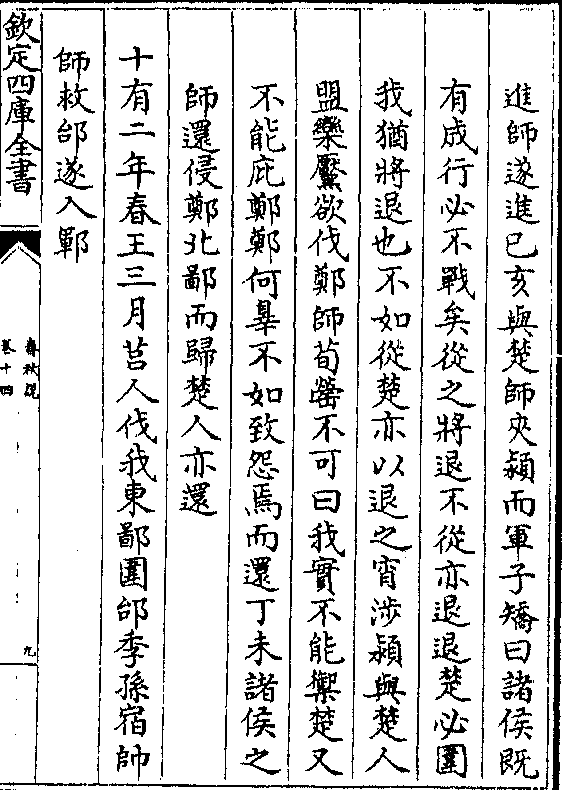 進師遂進己亥與楚師夾潁而軍子矯曰諸侯既
有成行必不戰矣從之將退不從亦退退楚必圍
我猶將退也不如從楚亦以退之宵涉潁與楚人
盟欒黶欲伐鄭師荀罃不可曰我實不能禦楚又
不能庇鄭鄭何辠不如致怨焉而還丁未諸侯之
師還侵鄭北鄙而歸楚人亦還
十有二年春王三月莒人伐我東鄙圍邰季孫宿帥
師救邰遂入鄆
欽定四庫全書
春秋說
卷十四
九